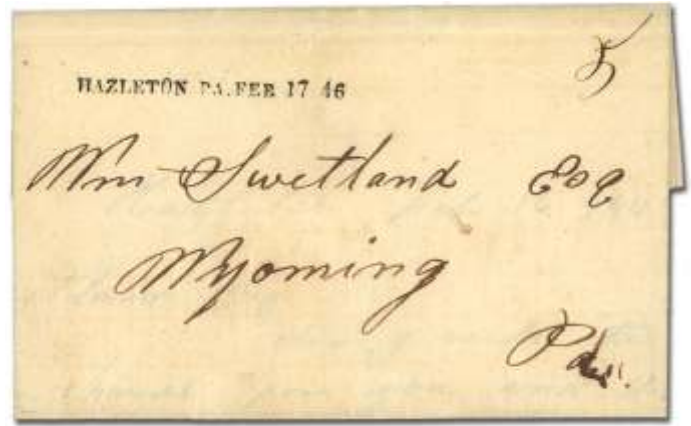 5
HAZLETON PA. FEB 17 46
Wm Swetland Esq
Wyoming